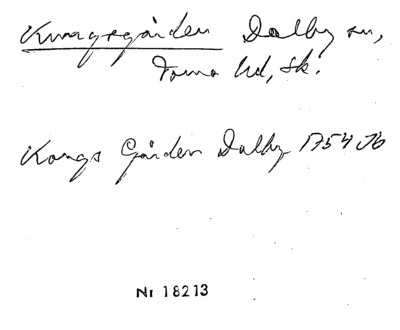 Kungsgården Dalby sn,
Torna hd, Sk.
Kongs Gården Dalby 1754 Jb
Nr 18213